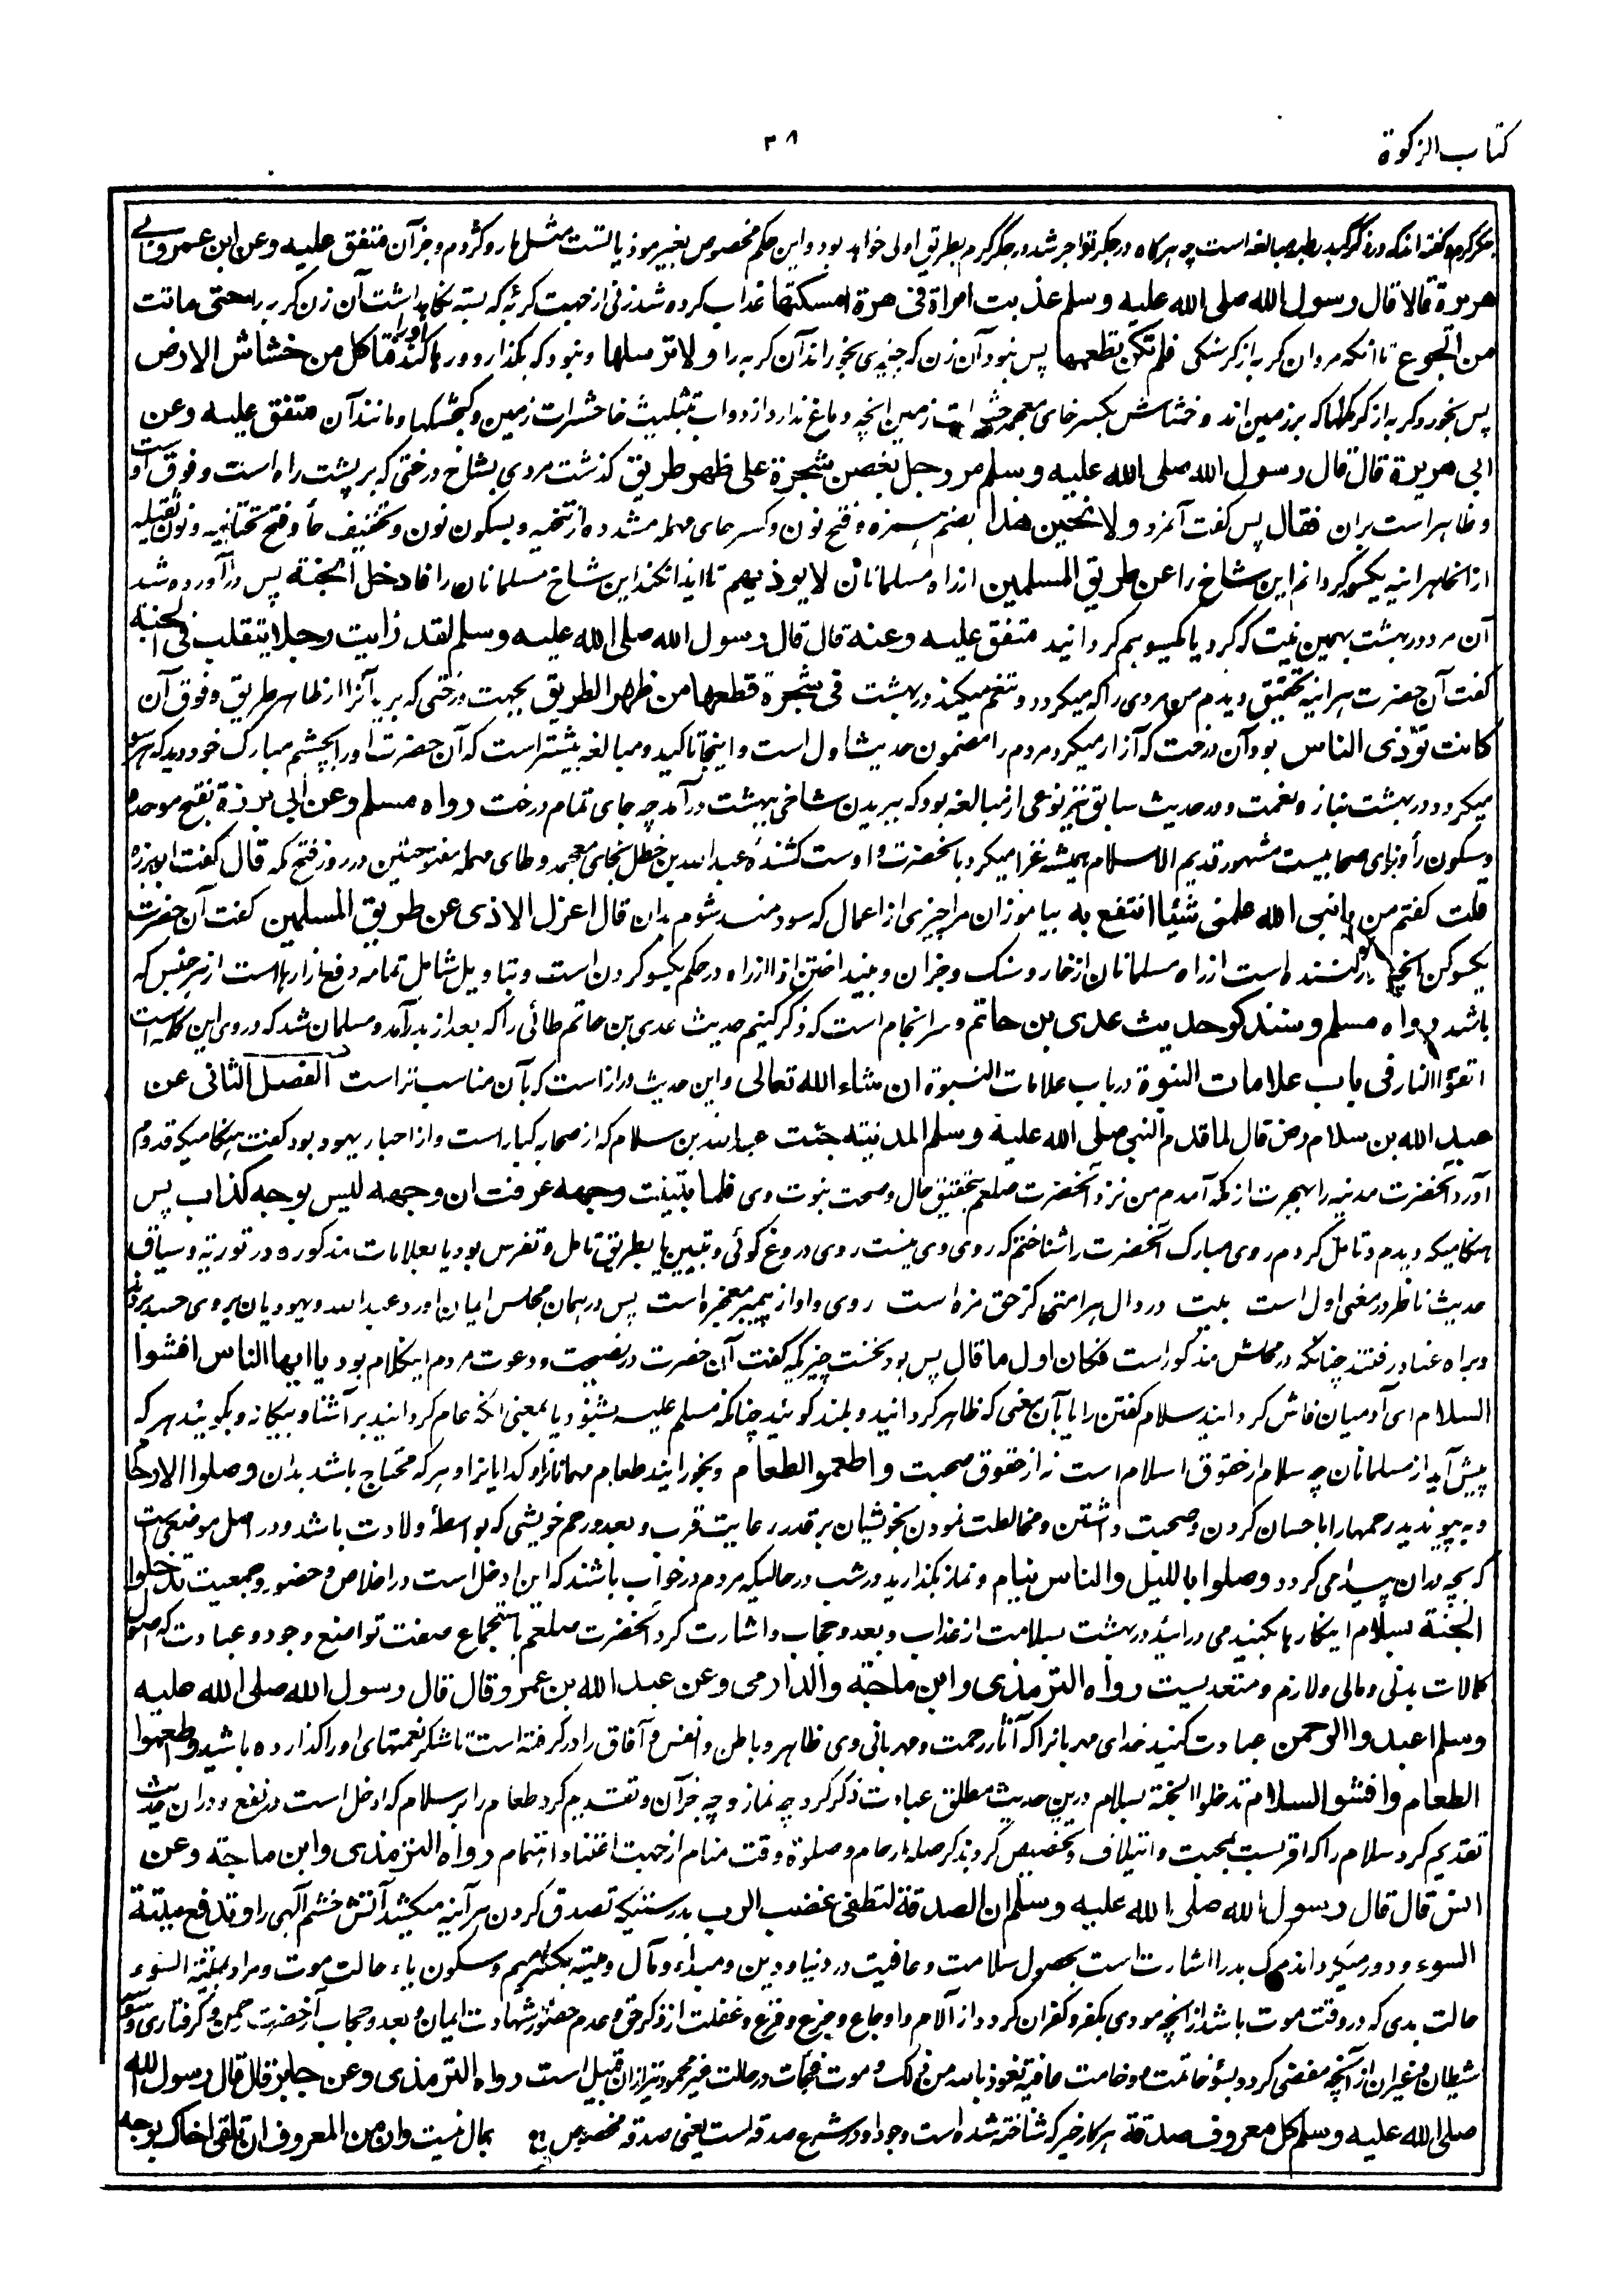 کتاب الزکوة
۳۸
جگر گرم و گفته اند که در ذکر کبد رطبه مبالغه است چه هرگاه در جگر تر اجر شد در جگر گرم بطریق اولی خواهد بود و این حکم مخصوص بغیر موذیاتست مثل مار و کژدم و جز آن متفق علیه وعن ابن عمر وابی
هریرة قالا قال رسول الله صلی الله علیه وسلم عذبت امرأة فی هرة امسکتها عذاب کرده شد زنی از جهت گربه که بسته نگاهداشت آن زن گربه را حتی ماتت
من الجوع تا آنکه مرد آن گربه از گرسنگی فلم تکن تطعمها پس نبود آن زن که چیزی بخوراند آن گربه را ولا ترسلها و نبود که بگذارد و رها کند او را فتاکل من خشاش الارض
پس بخورد گربه از کرمها که بر زمین اند و خشاش بکسر خای معجمه حشرات زمین انچه دماغ ندارد از دواب بتثلیث خا حشرات زمین و گنجشکها و مانند آن متفق علیه وعن
ابی هریرة قال قال رسول الله صلی الله علیه وسلم مر رجل بغصن شجرة علی ظهر طریق گذشت مردی بشاخ درختی که بر پشت راه است و فوق اوست
و ظاهر است بران فقال پس گفت آنمرد ولانحین هذا بضم همزه و فتح نون و کسر حای مهمله مشدده از تنحیه و بسکون نون و تخفیف حا و فتح تحتانیه و نون ثقیله
از انحا هر اینه یکسو گردانم این شاخ را عن طریق المسلمین از راه مسلمانان لا یوذیهم تا ایذا نکند این شاخ مسلمانان را فادخل الجنة پس در آورده شد
آن مرد در بهشت بهمین نیت که کرد یا یکسو هم گردانید متفق علیه وعنه قال قال رسول الله صلی الله علیه وسلم لقد رایت رجلا یتقلب فی الجنة
گفت آن حضرت هر اینه بتحقیق دیدم من مردی را که میگردد و تنعم میکند در بهشت فی شجرة قطعها من ظهر الطریق بجهت درختی که برید آنرا از ظاهر طریق و فوق آن
کانت تؤذی الناس بود آن درخت که آزار میکرد مردم را مضمون حدیث اول است و اینجا تاکید و مبالغه بیشتر است که آن حضرت او را بچشم مبارک خود دید که هر سو
میگردد در بهشت بناز و نعمت و در حدیث سابق نیز نوعی از مبالغه بود که ببریدن شاخی ببهشت در آمد چه جای تمام درخت رواه مسلم وعن ابی برزة بفتح موحده
و سکون را و بزای صحابیست مشهور قدیم الاسلام همیشه غزا میکرد با آنحضرت و اوست کشندهٔ عبد الله بن خطل بخای معجمه و طای مهمله مفتوحتین در روز فتح مکه قال گفت ابو برزه
قلت گفتم من یا نبی الله علمنی شیئا انتفع به بیاموزان مرا چیزی از اعمال که سودمند شوم بدان قال اعزل الاذی عن طریق المسلمین گفت آن حضرت
یکسو کن انچه آزار کننده است از راه مسلمانان از خار و سنگ و جز آن و بینداختن اذا از راه در حکم یکسو کردن است و بتاویل شامل تمامه دفع آزارها است از هر جنس که
باشد رواه مسلم وسنذکر حدیث عدی بن حاتم و سر انجام است که ذکر کنیم حدیث عدی بن حاتم طائی را که بعد از بدر آمد و مسلمان شد که در وی این کلمه است
اتقوا النار فی باب علامات النبوة در باب علامات النبوة ان شاء الله تعالی و این حدیث دراز است که بآن مناسب تر است الفصل الثانی عن
عبد الله بن سلام رض قال لما قدم النبی صلی الله علیه وسلم المدینة جئت عبد الله بن سلام که از صحابه کبار است و از احبار یهود بود گفت هنگامیکه قدوم
آورد آنحضرت مدینه را بهجرت از مکه آمدم من نزد آنحضرت صلعم بتحقیق حال و صحت نبوت وی فلما تبینت وجهه عرفت ان وجهه لیس بوجه کذاب پس
هنگامیکه دیدم و تامل کردم روی مبارک آنحضرت را شناختم که روی وی نیست روی دروغ گوئی و تبیین یا بطریق تامل و تفرس بود یا بعلامات مذکوره در توریة و سیاق
حدیث ناظر در معنی اول است بیت در دل هر امتی کز حق مزه است روی و آواز پیمبر معجزه است پس در همان مجلس ایمان آورد عبد الله و یهودیان بروی حسد بردند
و براه عناد رفتند چنانکه در محلش مذکور است فکان اول ما قال پس بود نخست چیزیکه گفت آن حضرت در نصیحت و دعوت مردم اینکلام بود یا ایها الناس افشوا
السلام ای آدمیان فاش گردانید سلام گفتن را یا بآن معنی که ظاهر گردانید و بلند گوئید چنانکه مسلم علیه بشنود یا بمعنی آنکه عام گردانید بر آشنا و بیگانه و بگوئید هر که
پیش آید از مسلمانان چه سلام از حقوق اسلام است نه از حقوق صحبت و اطعموا الطعام و بخورانید طعام مهمانانرا و گدایانرا و هر که محتاج باشد بدان وصلوا الارحام
و به پیوندید رحمها را با حسان کردن و صحبت داشتن و مخالطت نمودن بخویشان بر قدر رعایت قرب و بعد و رحم خویشی که بواسطهٔ ولادت باشد و در اصل موضعی است
که بچه دران پیدا می گردد وصلوا باللیل والناس نیام و نماز بگذارید در شب در حالیکه مردم در خواب باشند که این ادخل است در اخلاص و حضور و جمعیت تدخلوا
الجنة بسلام اینکارها بکنید می درائید در بهشت بسلامت از عذاب و بعد و حجاب و اشارت کرد آنحضرت صلعم باستجماع صفت تواضع وجود و عبادت که اصول
کمالات بدنی و مالی و لازم و متعدیست رواه الترمذی وابن ماجة والدارمی وعن عبد الله بن عمرو قال قال رسول الله صلی الله علیه
وسلم اعبدوا الرحمن عبادت کنید خدای مهربانرا که آثار رحمت و مهربانی وی ظاهر و باطن و انفس و آفاق را در گرفته است تا شکر نعمتهای او را گذارده باشید واطعموا
الطعام وافشوا السلام تدخلوا الجنة بسلام درین حدیث مطلق عبادت ذکر کرد چه نماز و چه جز آن و تقدیم کرد طعام را بر سلام که ادخل است در نفع و دران حدیث
تقدیم کرد سلام را که اقربست بمحبت و ائتلاف و تخصیص کرد بذکر صله ارحام و صلوة وقت منام از جهت اعتنا و اهتمام رواه الترمذی وابن ماجة وعن
انس قال قال رسول الله صلی الله علیه وسلم ان الصدقة لتطفئ غضب الرب بدرستیکه تصدق کردن هر آینه میکشد آتش خشم آلهی را وتدفع میتة
السوء و دور میگرداند مرگ بد را اشارت است بحصول سلامت و عافیت در دنیا و دین و مبداء و مآل و میتة بکسر میم و سکون یاء حالت موت و مراد بمیتة السوء
حالت بدی که در وقت موت باشد از انچه مودی بکفر و کفران گردد از آلام و اوجاع و جزع و فزع و غفلت از ذکر حق و عدم حضور شهادت ایمان و بعد و حجاب از حضرت رحمن و گرفتاری وسوسه
شیطان و غیر آن از آنچه مفضی گردد بسوء خاتمت و وخامت عاقبة نعوذ بالله من ذلک و موت فجأت در حالت غیر محمود نیز ازان قبیل است رواه الترمذی وعن جابر قال قال رسول الله
صلی الله علیه وسلم کل معروف صدقة هر کار خیر که شناخته شده است وجود او در شرع صدقه است یعنی صدقه مخصوص بمال نیست وان من المعروف ان تلقی اخاک بوجه